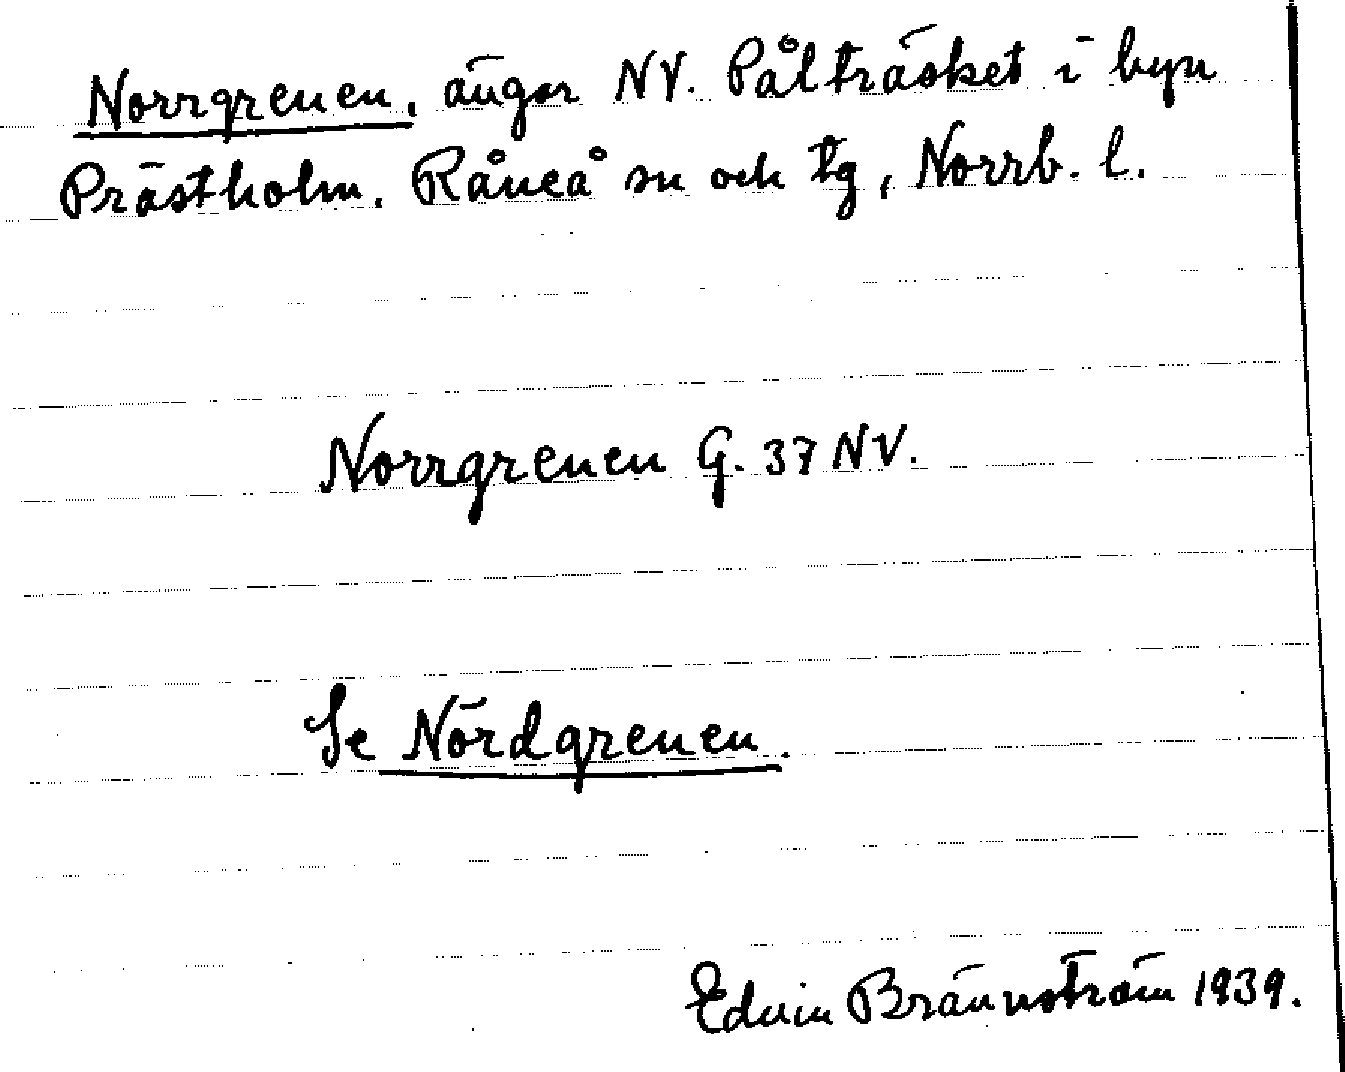 Norrgrenen, ängar NV. Pålträsket i byn
Prästholm. Råneå sn och tg, Norrb. l.
Norrgrenen G. 37 NV.
Se Nördgrenen.
Edvin Brännström 1939.